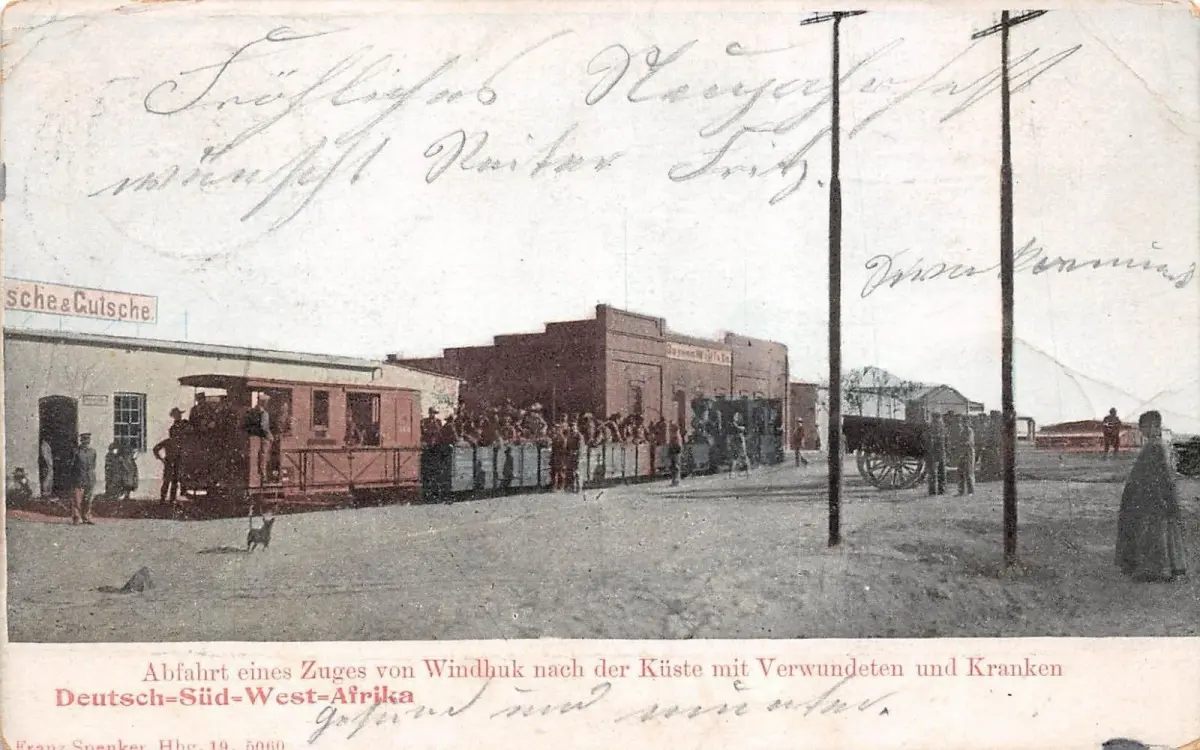 Fröhliches Neujahr
wünscht Reiter Fritz.
sche & Gutsche.
Abfahrt eines Zuges von Windhuk nach der Küste mit Verwundeten und Kranken
Deutsch=Süd=West=Afrika
gesund und munter.
Franz Spenker, Hbg. 19. 5060